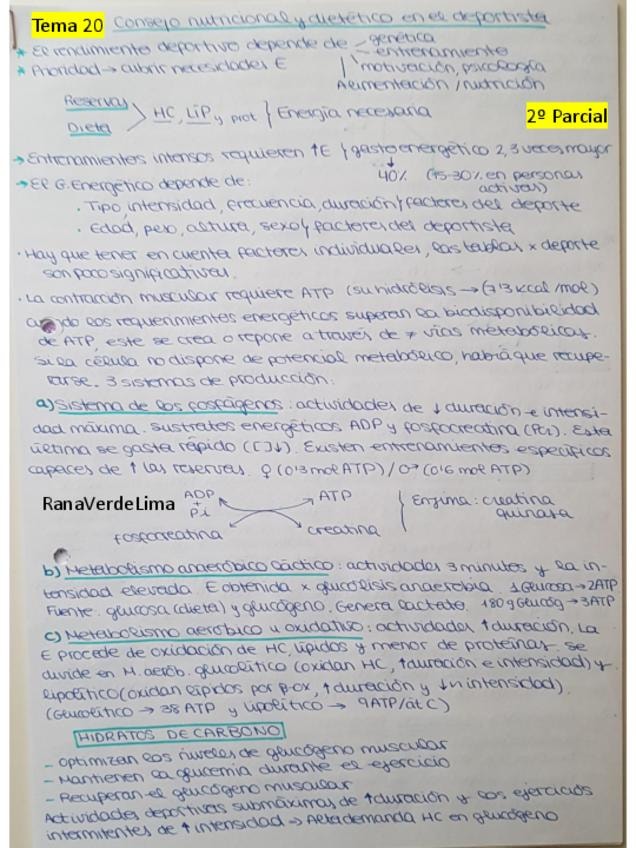 Tema 20 Consejo nutricional y dietético en el deportista
* El rendimiento deportivo depende de genética
entrenamiento
motivación, psicología
Alimentación / nutrición
* Prioridad → cubrir necesidades E
Reservas
Dieta
HC, LIP y prot } Energía necesaria
2º Parcial
→ Entrenamientos intensos requieren ↑E y gasto energético 2,3 veces mayor
40% (15-30% en personas
activas)
→ El G. Energético depende de:
· Tipo, intensidad, frecuencia, duración y factores del deporte
· Edad, peso, altura, sexo y factores del deportista
· Hay que tener en cuenta factores individuales, las tablas x deporte
son poco significativas.
· La contracción muscular requiere ATP (su hidrólisis → (7'3 kcal/mol)
cuando los requerimientos energéticos superan la biodisponibilidad
de ATP, este se crea o repone a través de ≠ vías metabólicas.
Si la célula no dispone de potencial metabólico, habrá que recupe-
rarse. 3 sistemas de producción:
a) Sistema de los fosfágenos: actividades de ↓ duración e intensi-
dad máxima. Sustratos energéticos ADP y fosfocreatina (PCr). Esta
última se gasta rápido ([]↓). Existen entrenamientos específicos
capaces de ↑ las reservas. ♀ (0'3 mol ATP) / ♂ (0'6 mol ATP)
RanaVerdeLima
ADP
+
Pi
ATP
fosfocreatina
creatina
Enzima: creatina
quinasa
b) Metabolismo anaeróbico láctico: actividades 3 minutos y la in-
tensidad elevada. E obtenida x glucólisis anaerobia. 1 Glucosa → 2ATP
Fuente: glucosa (dieta) y glucógeno. Genera lactato. 180g Glucóg → 3ATP
c) Metabolismo aeróbico u oxidativo: actividades ↑ duración. La
E procede de oxidación de HC, lípidos y menor de proteínas. Se
divide en M. aerób. glucolítico (oxidan HC, ↑ duración e intensidad) y
lipolítico (oxidan lípidos por β-ox, ↑ duración y ↓ intensidad).
(Glucolítico → 38 ATP y Lipolítico → 9ATP/át C)
HIDRATOS DE CARBONO
- Optimizan los niveles de glucógeno muscular
- Mantienen la glucemia durante el ejercicio
- Recuperan el glucógeno muscular
Actividades deportivas submáximas de ↑ duración y los ejercicios
intermitentes de ↑ intensidad → Alta demanda HC en glucógeno